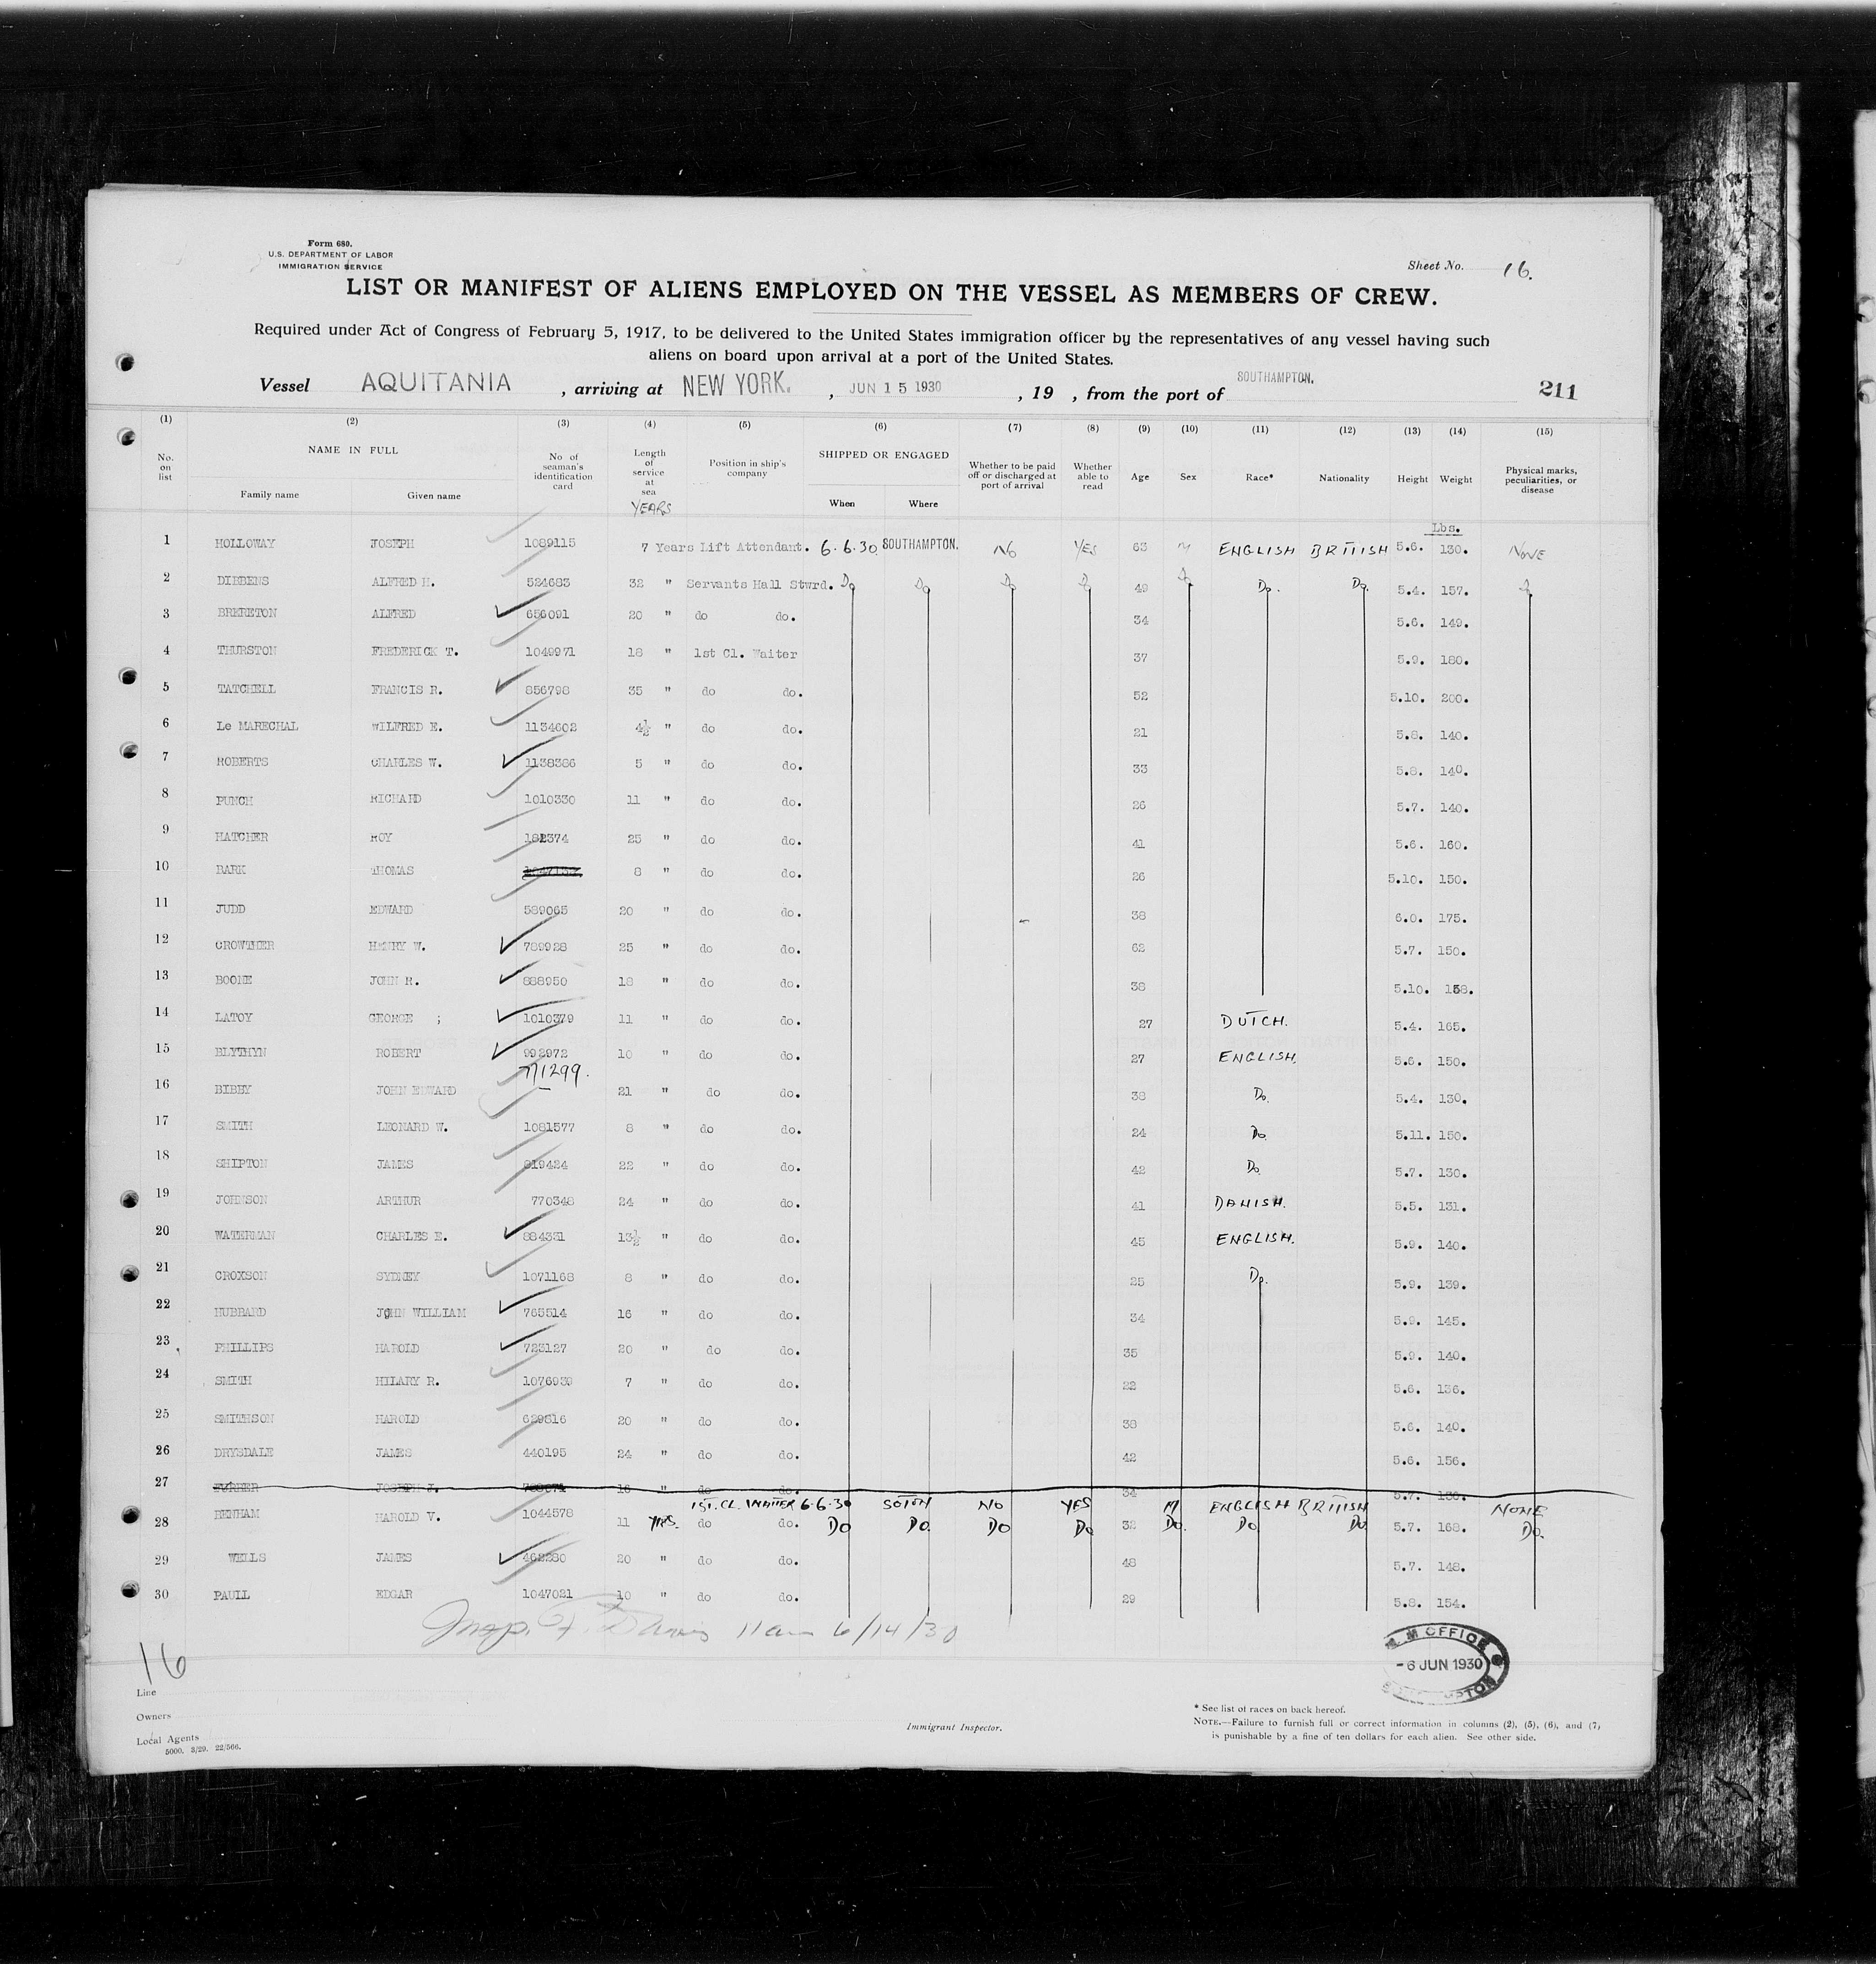 Form 680.
U.S. DEPARTMENT OF LABOR
IMMIGRATION SERVICE
Sheet No. 16.
LIST OR MANIFEST OF ALIENS EMPLOYED ON THE VESSEL AS MEMBERS OF CREW.
Required under Act of Congress of February 5, 1917, to be delivered to the United States immigration officer by the representatives of any vessel having such
aliens on board upon arrival at a port of the United States.
Vessel AQUITANIA , arriving at NEW YORK. , JUN 15 1930 , 19 , from the port of SOUTHAMPTON. 211
(1) (2) (3) (4) (5) (6) (7) (8) (9) (10) (11) (12) (13) (14) (15)
No. on list NAME IN FULL Family name Given name No. of seaman's identification card Length of service at sea YEARS Position in ship's company SHIPPED OR ENGAGED When Where Whether to be paid off or discharged at port of arrival Whether able to read Age Sex Race* Nationality Height Weight Physical marks, peculiarities, or disease
Lbs.
1 HOLLOWAY JOSEPH 1089115 7 Years Lift Attendant. 6.6.30 SOUTHAMPTON. NO YES 63 M ENGLISH BRITISH 5.6. 130. NONE
2 DIBBENS ALFRED H. 524683 32 " Servants Hall Stwrd. Do Do Do Do 49 Do Do. Do. 5.4. 157. Do
3 BRERETON ALFRED 656091 20 " do do. 34 5.6. 149.
4 THURSTON FREDERICK T. 1049971 18 " 1st Cl. Waiter 37 5.9. 180.
5 TATCHELL FRANCIS R. 856798 35 " do do. 52 5.10. 200.
6 Le MARECHAL WILFRED E. 1134602 4½ " do do. 21 5.8. 140.
7 ROBERTS CHARLES W. 1138386 5 " do do. 33 5.8. 140.
8 PUNCH RICHARD 1010330 11 " do do. 26 5.7. 140.
9 HATCHER ROY 182374 25 " do do. 41 5.6. 160.
10 BARK THOMAS 8 " do do. 26 5.10. 150.
11 JUDD EDWARD 589065 20 " do do. 38 6.0. 175.
12 CROWTHER HENRY W. 789928 25 " do do. 62 5.7. 150.
13 BOONE JOHN R. 888950 18 " do do. 38 5.10. 158.
14 LATOY GEORGE ; 1010379 11 " do do. 27 DUTCH. 5.4. 165.
15 BLYTHYN ROBERT 992972 10 " do do. 27 ENGLISH. 5.6. 150.
16 BIBBY JOHN EDWARD 771299. 21 " do do. 38 Do. 5.4. 130.
17 SMITH LEONARD W. 1081577 8 " do do. 24 Do. 5.11. 150.
18 SHIPTON JAMES 819424 22 " do do. 42 Do. 5.7. 130.
19 JOHNSON ARTHUR 770348 24 " do do. 41 DANISH. 5.5. 131.
20 WATERMAN CHARLES E. 884331 13½ " do do. 45 ENGLISH. 5.9. 140.
21 CROXSON SYDNEY 1071168 8 " do do. 25 Do. 5.9. 139.
22 HUBBARD JOHN WILLIAM 765514 16 " do do. 34 5.9. 145.
23 PHILLIPS HAROLD 723127 20 " do do. 35 5.9. 140.
24 SMITH HILARY R. 1076939 7 " do do. 22 5.6. 136.
25 SMITHSON HAROLD 629816 20 " do do. 38 5.6. 140.
26 DRYSDALE JAMES 440195 24 " do do. 42 5.6. 156.
27 JOSEPH J. 16 " do do. 34 5.7. 136.
1ST. CL. WAITER 6.6.30 SOTON NO YES M ENGLISH BRITISH NONE
28 BENHAM HAROLD V. 1044578 11 YRS. do do. DO DO. DO DO 32 DO. DO. DO. 5.7. 168. DO.
29 WELLS JAMES 462280 20 " do do. 48 5.7. 148.
30 PAULL EDGAR 1047021 10 " do do. 29 5.8. 154.
Insp. F. Davis 11 am 6/14/30
M M OFFICE
-6 JUN 1930
16
Line
Owners
Local Agents
5000. 3/29. 22/566.
Immigrant Inspector.
* See list of races on back hereof.
NOTE.—Failure to furnish full or correct information in columns (2), (5), (6), and (7)
is punishable by a fine of ten dollars for each alien. See other side.